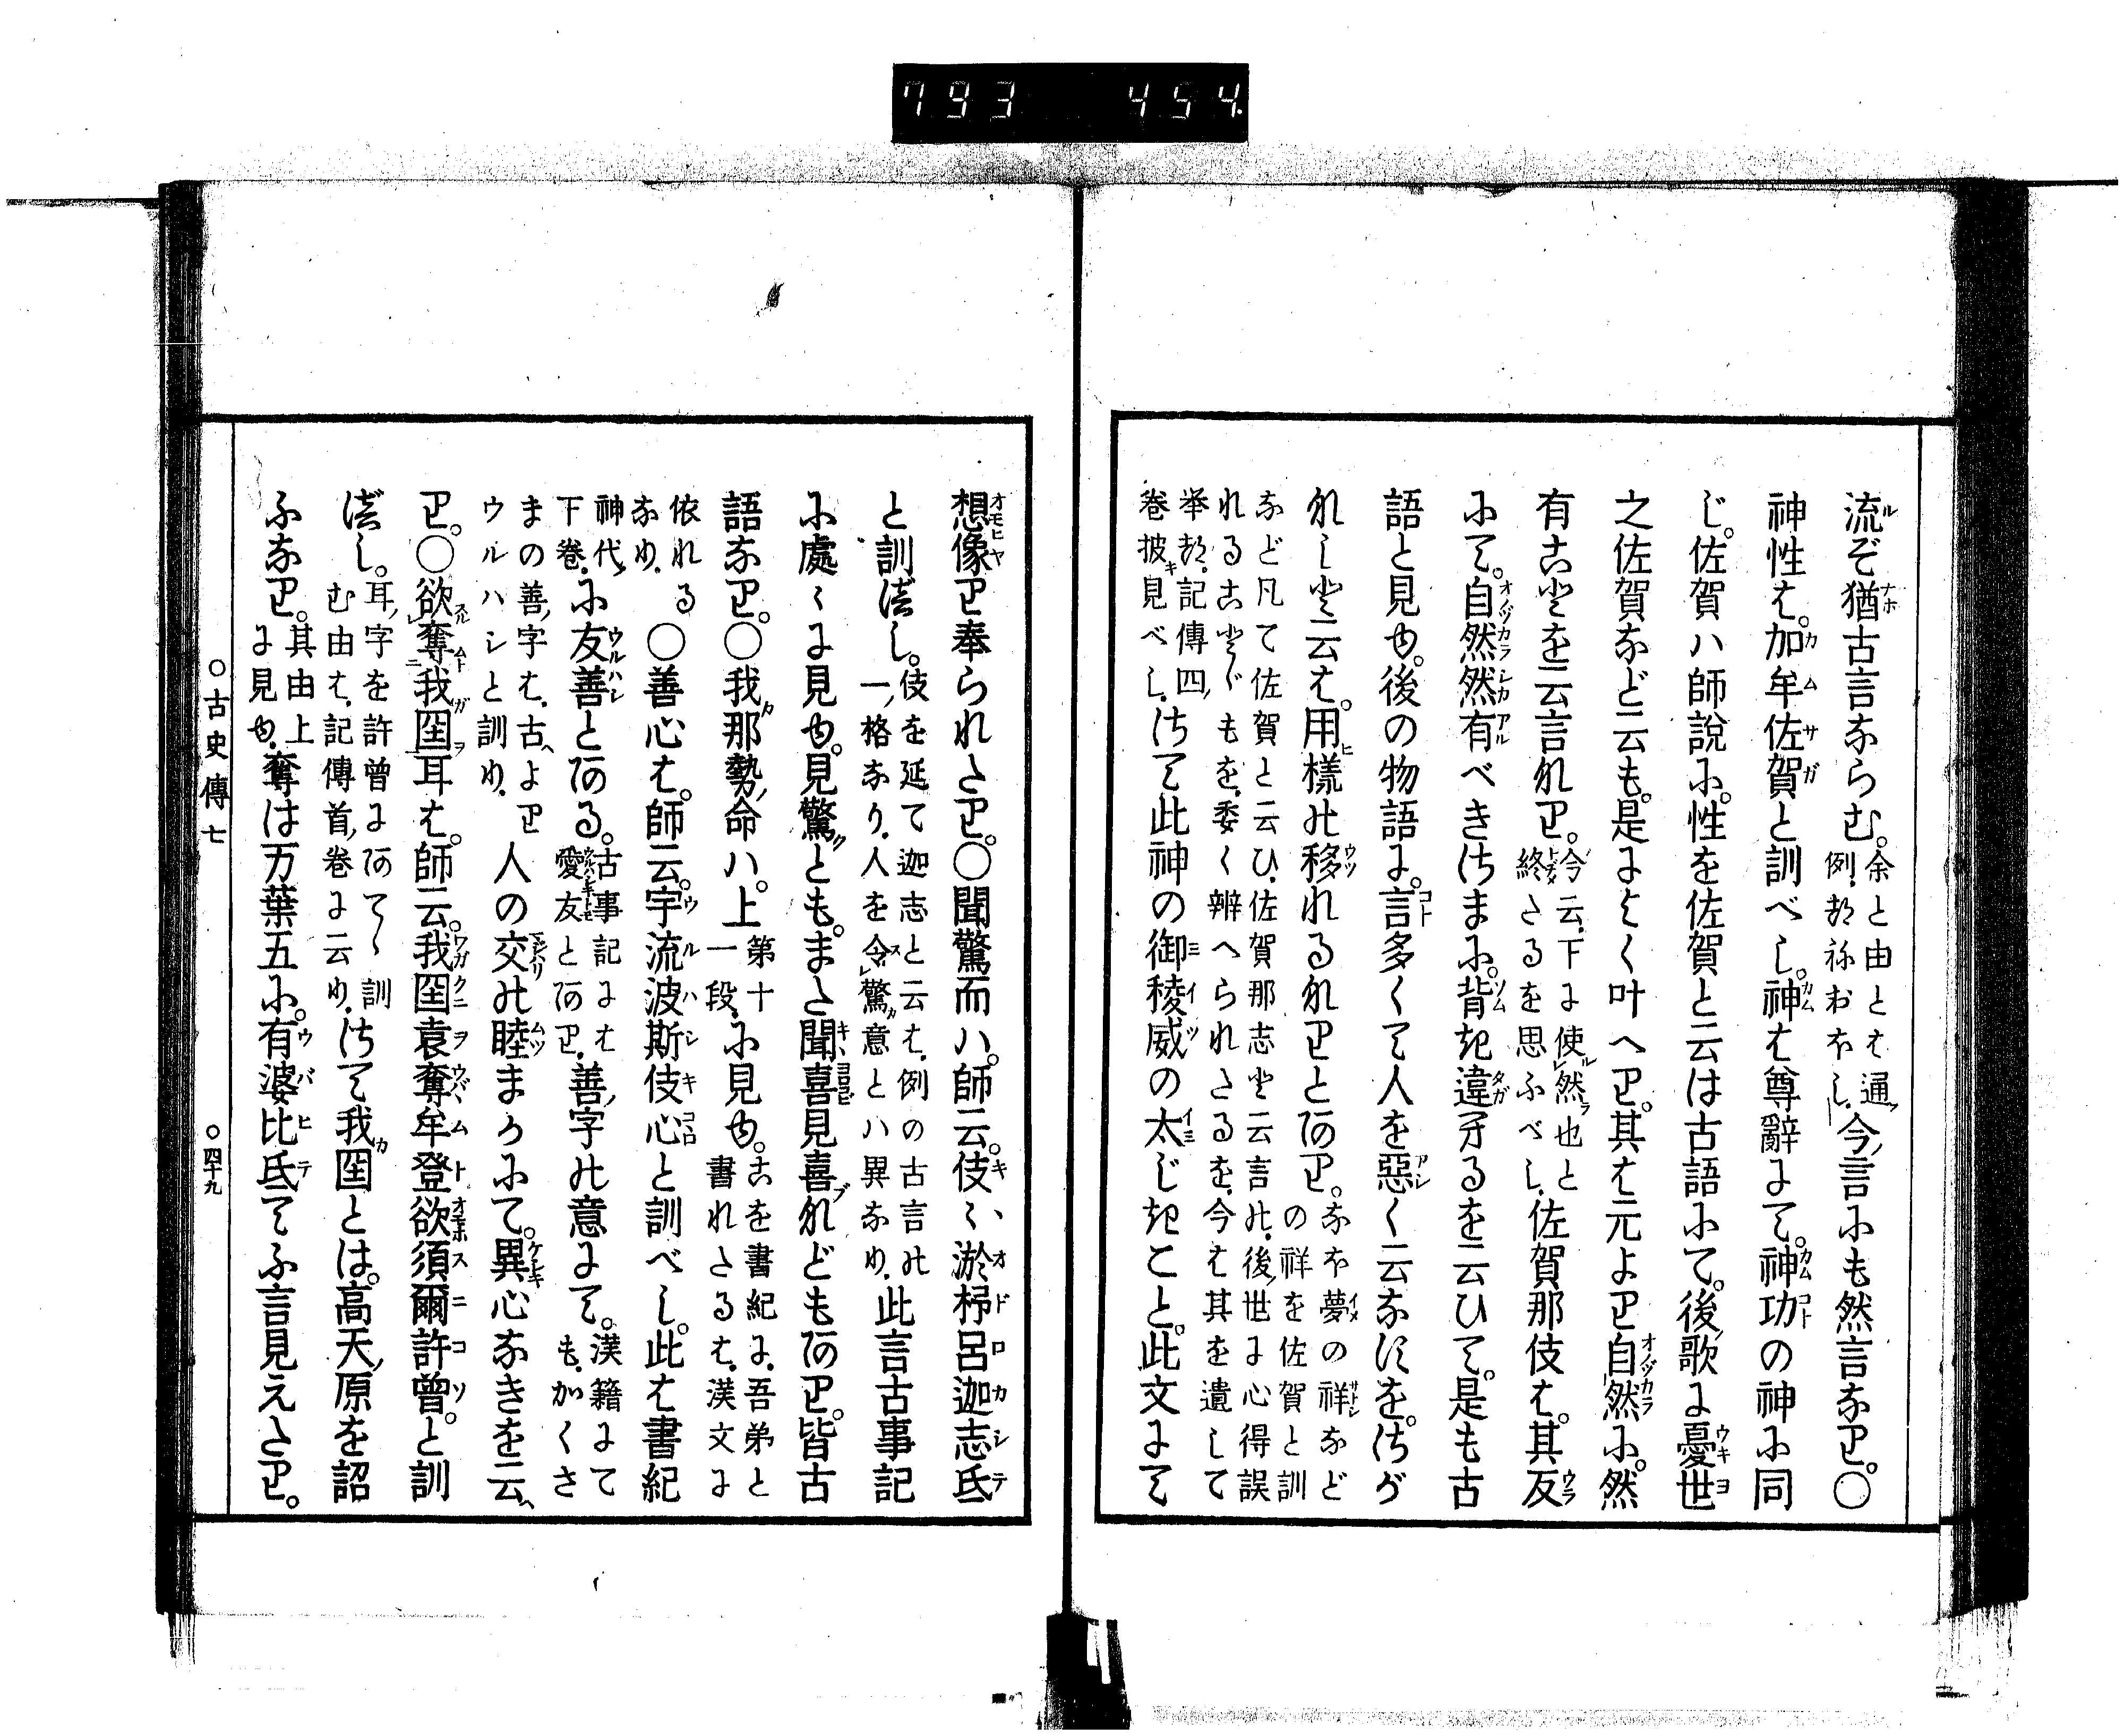 793 454.
流ぞ猶古言ならむ。余と由とは通例都祢おほし、今言にも然言なり。〇
神性は。加牟佐賀と訓べし。神は尊辭にて。神功の神に同
じ。佐賀ハ師説に。性を佐賀と云は古語にて。後歌に憂世
之佐賀など云も。是によく叶へり。其は元より自然に。然
有ことを云言なり。今云、下に使然也と終たるを思ふべし、佐賀那伎は。其反
にて。自然然有べきさまに。背き違するを云ひて。是も古
語と見ゆ。後の物語に。言多くて人を惡く云なすを。さが
なしと云は。用樣の移れるなりとあり。なほ夢の祥などの祥を佐賀と訓
など凡て佐賀と云ひ、佐賀那志と云言の、後世に心得誤れることゞもを、委く辨へられたるを、今は其を遺して
擧つ、記傳四卷披見べし、さて此神の御稜威の太じきこと。此文にて
想像り奉られたり。〇聞驚而ハ。師云。伎〻淤杼呂迦志氐
と訓べし。伎を延て迦志と云は、例の古言の一格なり、人を令驚意とハ異なり、此言古事記
に處〻に見ゆ。見驚とも。また聞喜見喜などもあり。皆古
語なり。〇我那勢命ハ。上第十一段、に見ゆ。こを書紀に、吾弟と書れたるは、漢文に
依れるなり、〇善心は。師云。宇流波斯伎心と訓べし。此は書紀
神代下卷、に友善とある。古事記には愛友とあり、善字の意にて。漢籍にても、かくさ
まの善字は、古よりウルハシと訓り、人の交の睦まかにて。異心なきを云、
り。〇欲奪我国耳は。師云。我国袁奪牟登欲須爾許曾。と訓
べし。耳字を許曾にあてゝ訓む由は、記傳首卷に云り、さて我国とは。高天原を詔
ふなり。其由上に見ゆ、奪は万葉五に。有婆比氐てふ言見えたり。
〇古史傳七　〇四十九